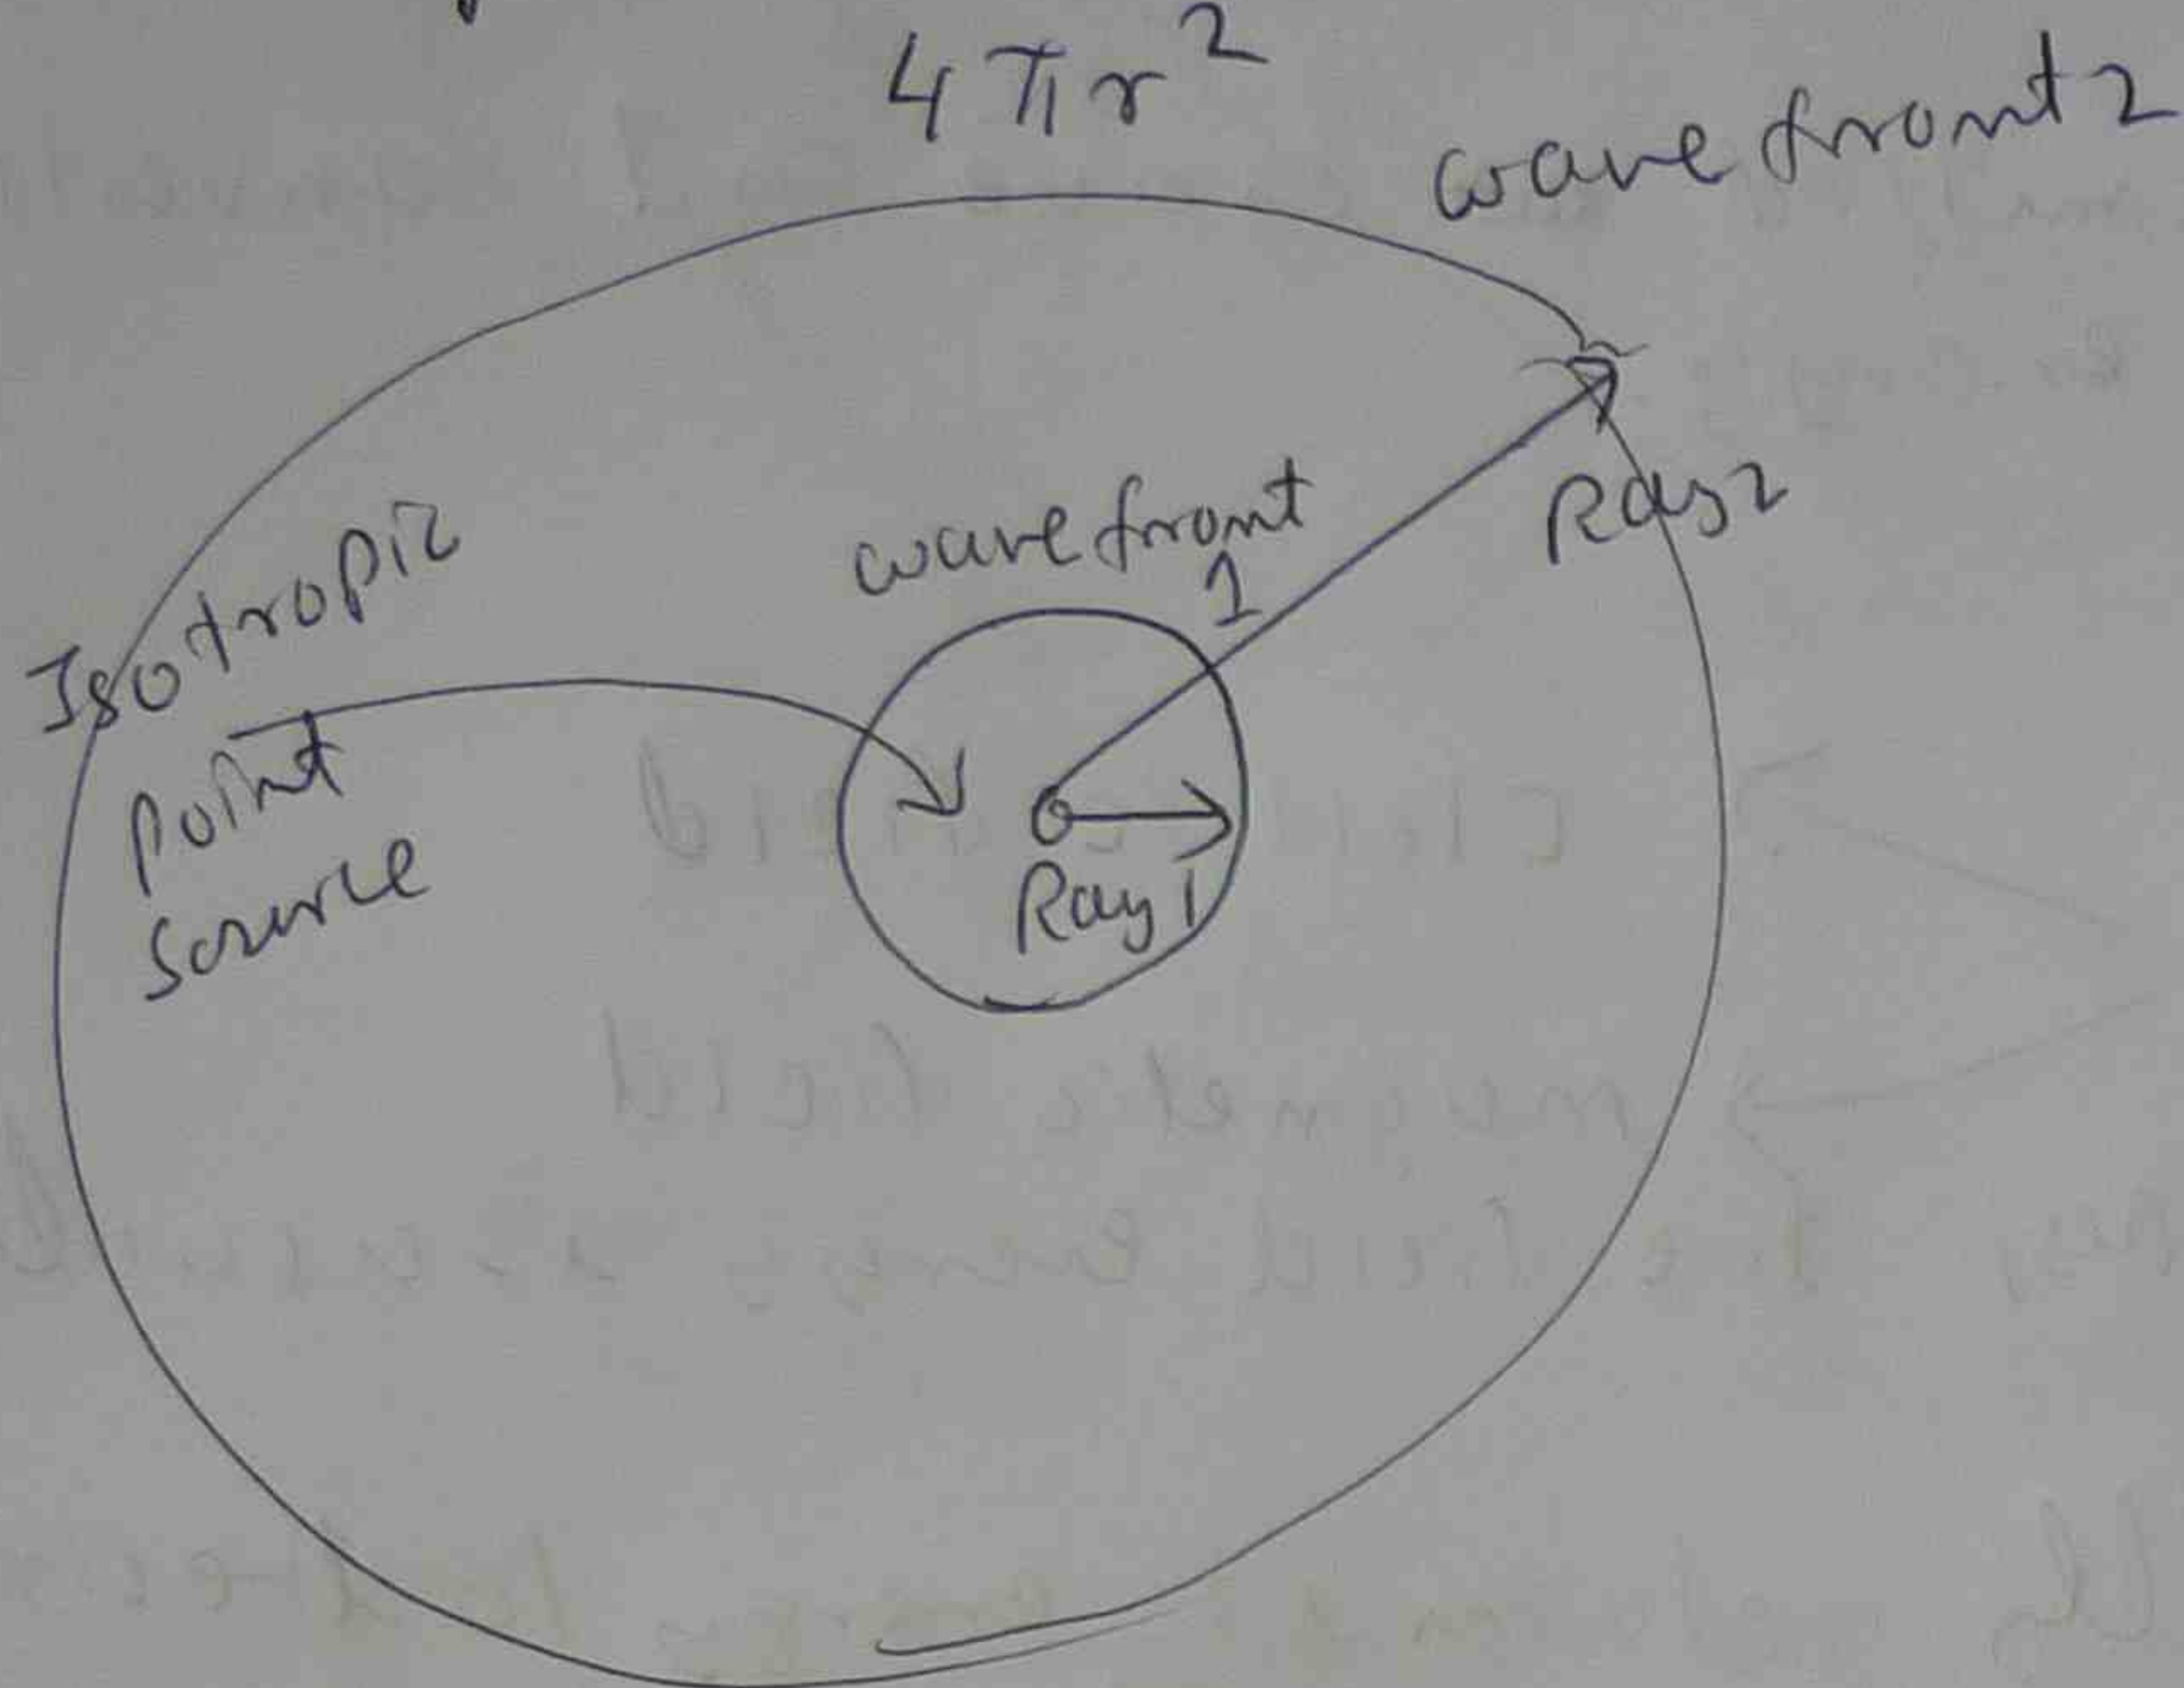 4πr²
wavefront 2
Isotropic
point
source
wavefront
1
Ray 2
Ray 1